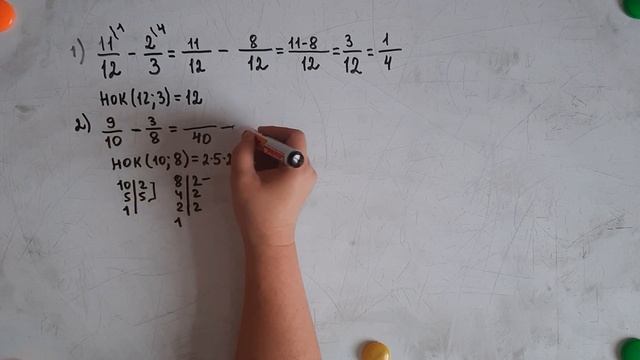 1) 11\1/12 - 2\4/3 = 11/12 - 8/12 = 11-8/12 = 3/12 = 1/4
НОК (12; 3) = 12
2) 9/10 - 3/8 = /40 -
НОК (10; 8) = 2·5·2
10|2] 8|2-
5|5 4|2
1| 2|2
1